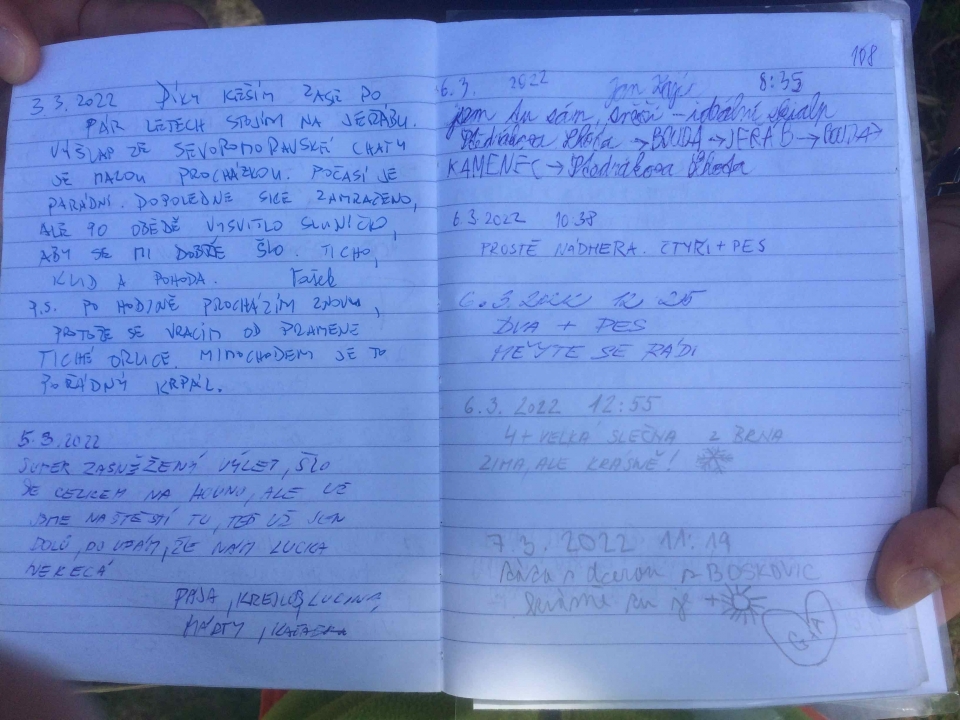 3.3.2022 DÍKY KEŠÍM ZASE PO
PÁR LETECH STOJÍM NA JEŘÁBU.
VÝŠLAP ZE SEVOROMORAVSKÉ CHATY
JE MALOU PROCHÁZKOU. POČASÍ JE
PARÁDNÍ. DOPOLEDNE SICE ZAMRAČENO,
ALE PO OBĚDĚ VYSVITLO SLUNÍČKO,
ABY SE MI DOBŘE ŠLO. TICHO,
KLID A POHODA. Vašek
P.S. PO HODINĚ PROCHÁZÍM ZNOVU,
PROTOŽE SE VRACÍM OD PRAMENE
TICHÉ ORLICE. MIMOCHODEM JE TO
POŘÁDNÝ KRPÁL.
5.3.2022
SUPER ZASNĚŽENÝ VÝLET, ŠLO
SE CELKEM NA HOVNO, ALE UŽ
JSME NAŠTĚSTÍ TU, TEĎ UŽ JEN
DOLŮ, DOUFÁM, ŽE NÁM LUCKA
NEKECÁ
PÁJA, LUCINA,
MÁRTY,
108
6.3. 2022 Jan 8:35
jsem tu sám, sněží - ideální skialp
BOUDA → JEŘÁB → BOUDA →
KAMENEC →
6.3.2022 10:38
PROSTĚ NÁDHERA. ČTYŘI + PES
6.3.2022 12 25
DVA + PES
MĚJTE SE RÁDI
6.3.2022 12:55
4 + VELKÁ SLEČNA Z BRNA
ZIMA, ALE KRÁSNĚ!
7.3.2022 11:19
s dcerou z BOSKOVIC
je +